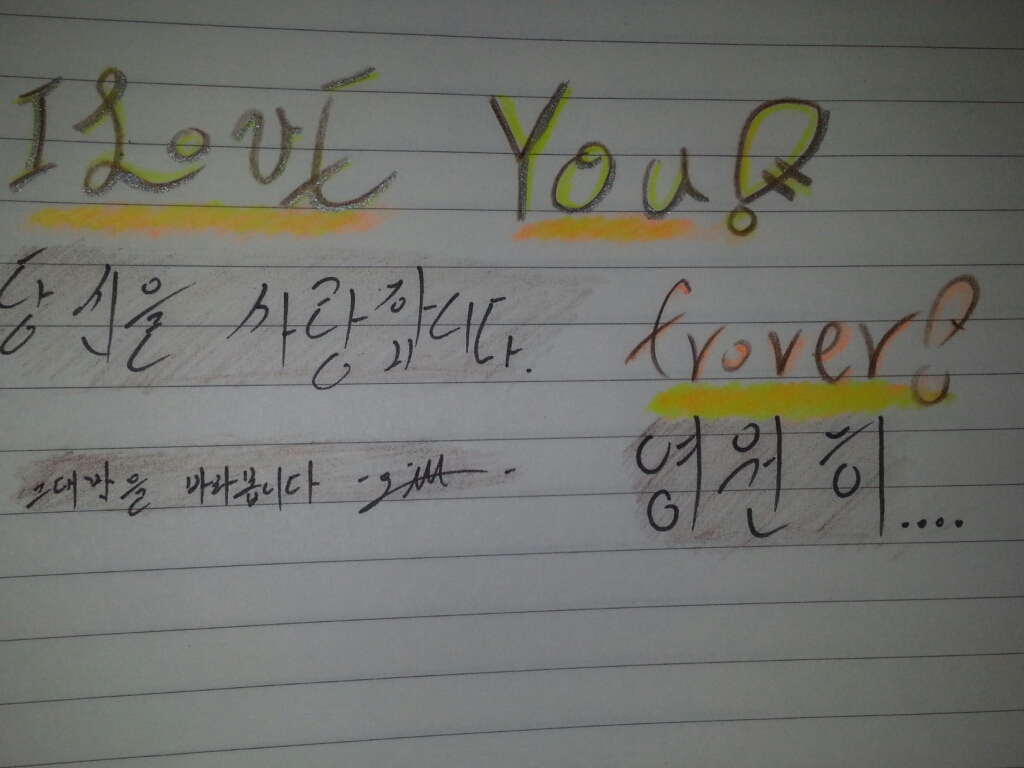 I Love You!
당신을 사랑합니다.
frover!
영원히....
그대만을 바라봅니다